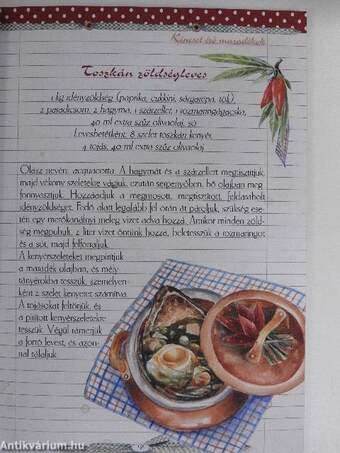 Kincset érő maradékok
Toszkán zöldségleves
1 kg idényzöldség (paprika, cukkini, sárgarépa, tök),
2 paradicsom, 2 hagyma, 1 szárzeller, 1 rozmaringágacska,
40 ml extra szűz olívaolaj, só
Levesbetétként: 8 szelet toszkán kenyér,
4 tojás, 40 ml extra szűz olívaolaj
Olasz nevén: acquacotta. A hagymát és a szárzellert megtisztítjuk,
majd vékony szeletekre vágjuk, ezután serpenyőben, bő olajban meg-
fonnyasztjuk. Hozzáadjuk a megmosott, megtisztított, feldarabolt
idényzöldséget. Fedő alatt legalább fél órán át pároljuk, szükség ese-
tén egy merőkanálnyi meleg vizet adva hozzá. Amikor minden zöld-
ség megpuhult, 2 liter vizet öntünk hozzá, beletesszük a rozmaringot
és a sót, majd felforraljuk.
A kenyérszeleteket megpirítjuk
a maradék olajban, és mély-
tányérokba tesszük, személyen-
ként 2 szelet kenyeret számítva.
A tojásokat feltörjük, és
a pirított kenyérszeletekre
tesszük. Végül rámerjük
a forró levest, és azon-
nal tálaljuk.
Antikvárium.hu